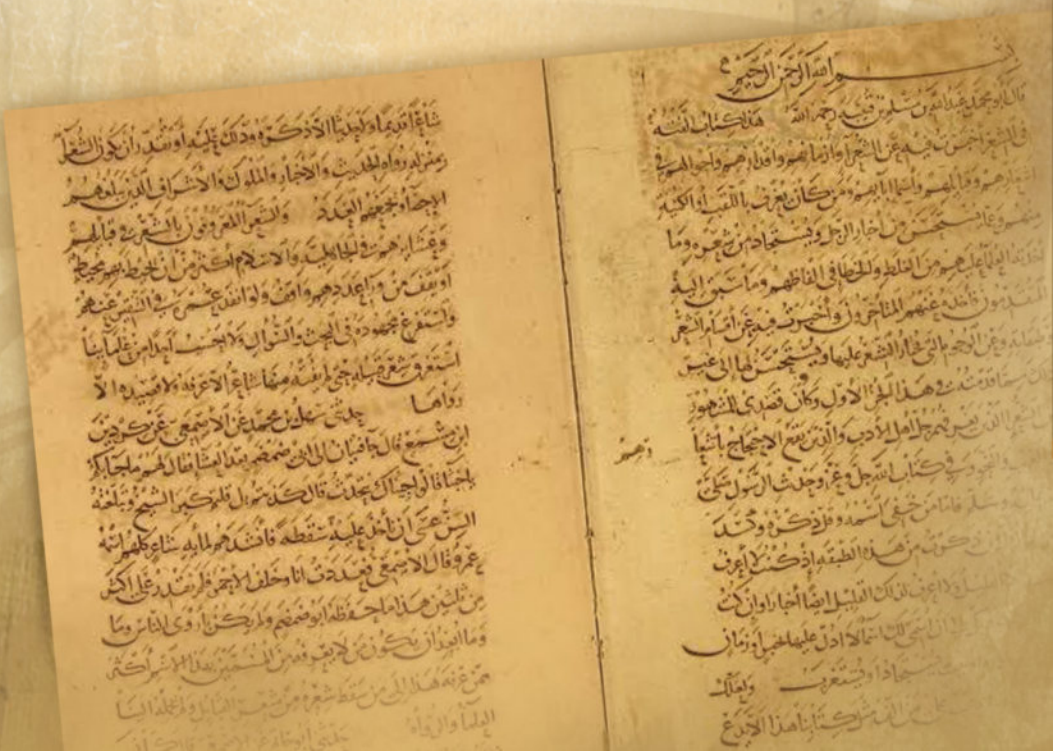 بسم الله الرحمن الرحيم
قال ابو محمد عبد الله بن مسلم بن قتيبة رحمه الله هذا كتاب الفته
في الشعر اخبرت فيه عن الشعرا وازمانهم واقدارهم واحوالهم في
اشعارهم وقبايلهم واسما ابايهم ومن كان يعرف باللقب او الكنية
منهم وعما يستحسن من اخبار الرجل ويستجاد من شعره وما
اخذته العلما عليهم من الغلط والخطا في الفاظهم وما سبق اليه
المتقدمون فاخذه عنهم المتاخرون واخبرت فيه عن اقسام الشعر
وطبقاته وعن الوجوه التي يختار الشعر عليها ويستحسن لها الى غير
ذلك مما قدمته في هذا الجزء الاول وكان قصدي للمشهور
الشعرا الذين يعرفهم جل اهل الادب والذين يقع الاحتجاج باشعا
والنحو وفي كتاب الله جل وعز وحديث الرسول صلى
وسلم فاما من خفي اسمه وقل ذكره وكسد
ذكرت من هذه الطبقة اذ كنت لا اعرف
القليل ولا اعرف لذلك القليل ايضا اخبارا وان كنت
ان اسمي لك اسما لا ادل عليها بخبر او زمان
او يستغرب ولعلك
كتابنا هذا الا يدع
شاعرا قديما ولا حديثا الا ذكره ودلك عليه او تقدر ان يكون الشعرا
بمنزلة رواه الحديث والاخبار والملوك والاشراف الذين يبلغهم
الاحصا ويجمعهم العدد والشعرا المعروفون بالشعر في قبايلهم
وعشايرهم في الجاهلية والاسلام اكثر من ان يحيط بهم محيط
او يقف من ورا عددهم واقف ولو انفد عمره في التنقير عنهم
واستفرغ مجهوده في البحث والسوال ولا احسب احدا من علماينا
استغرق شعر قبيلة حتى لم يفته منها شاعر الا عرفه ولا قصيدة الا
رواها حدثني سهل بن محمد عن الاصمعي عن كردين
ابن مسمع قال جا فتيان الى ابي ضمضم بعد العشا فقال لهم ما جا بكم
يا خبثا قالوا جيناك نتحدث قال كذبتم بل قلتم كبر الشيخ وتبلغته
السن عسى ان ناخذ عليه سقطة فانشدهم لماية شاعر كلهم اسمه
عمرو قال الاصمعي فعددت انا وخلف الاحمر فلم نقدر على اكثر
من ثلثين هذا ما حفظه ابو ضمضم ولم يكن باروى الناس وما
وما ابعد ان يكون من لا يعرفه من المسمين بهذا الاسم اكثر
ممن عرفه هذا الى من سقط شعره من شعرا القبايل ولم يحمله الينا
العلما والرواة